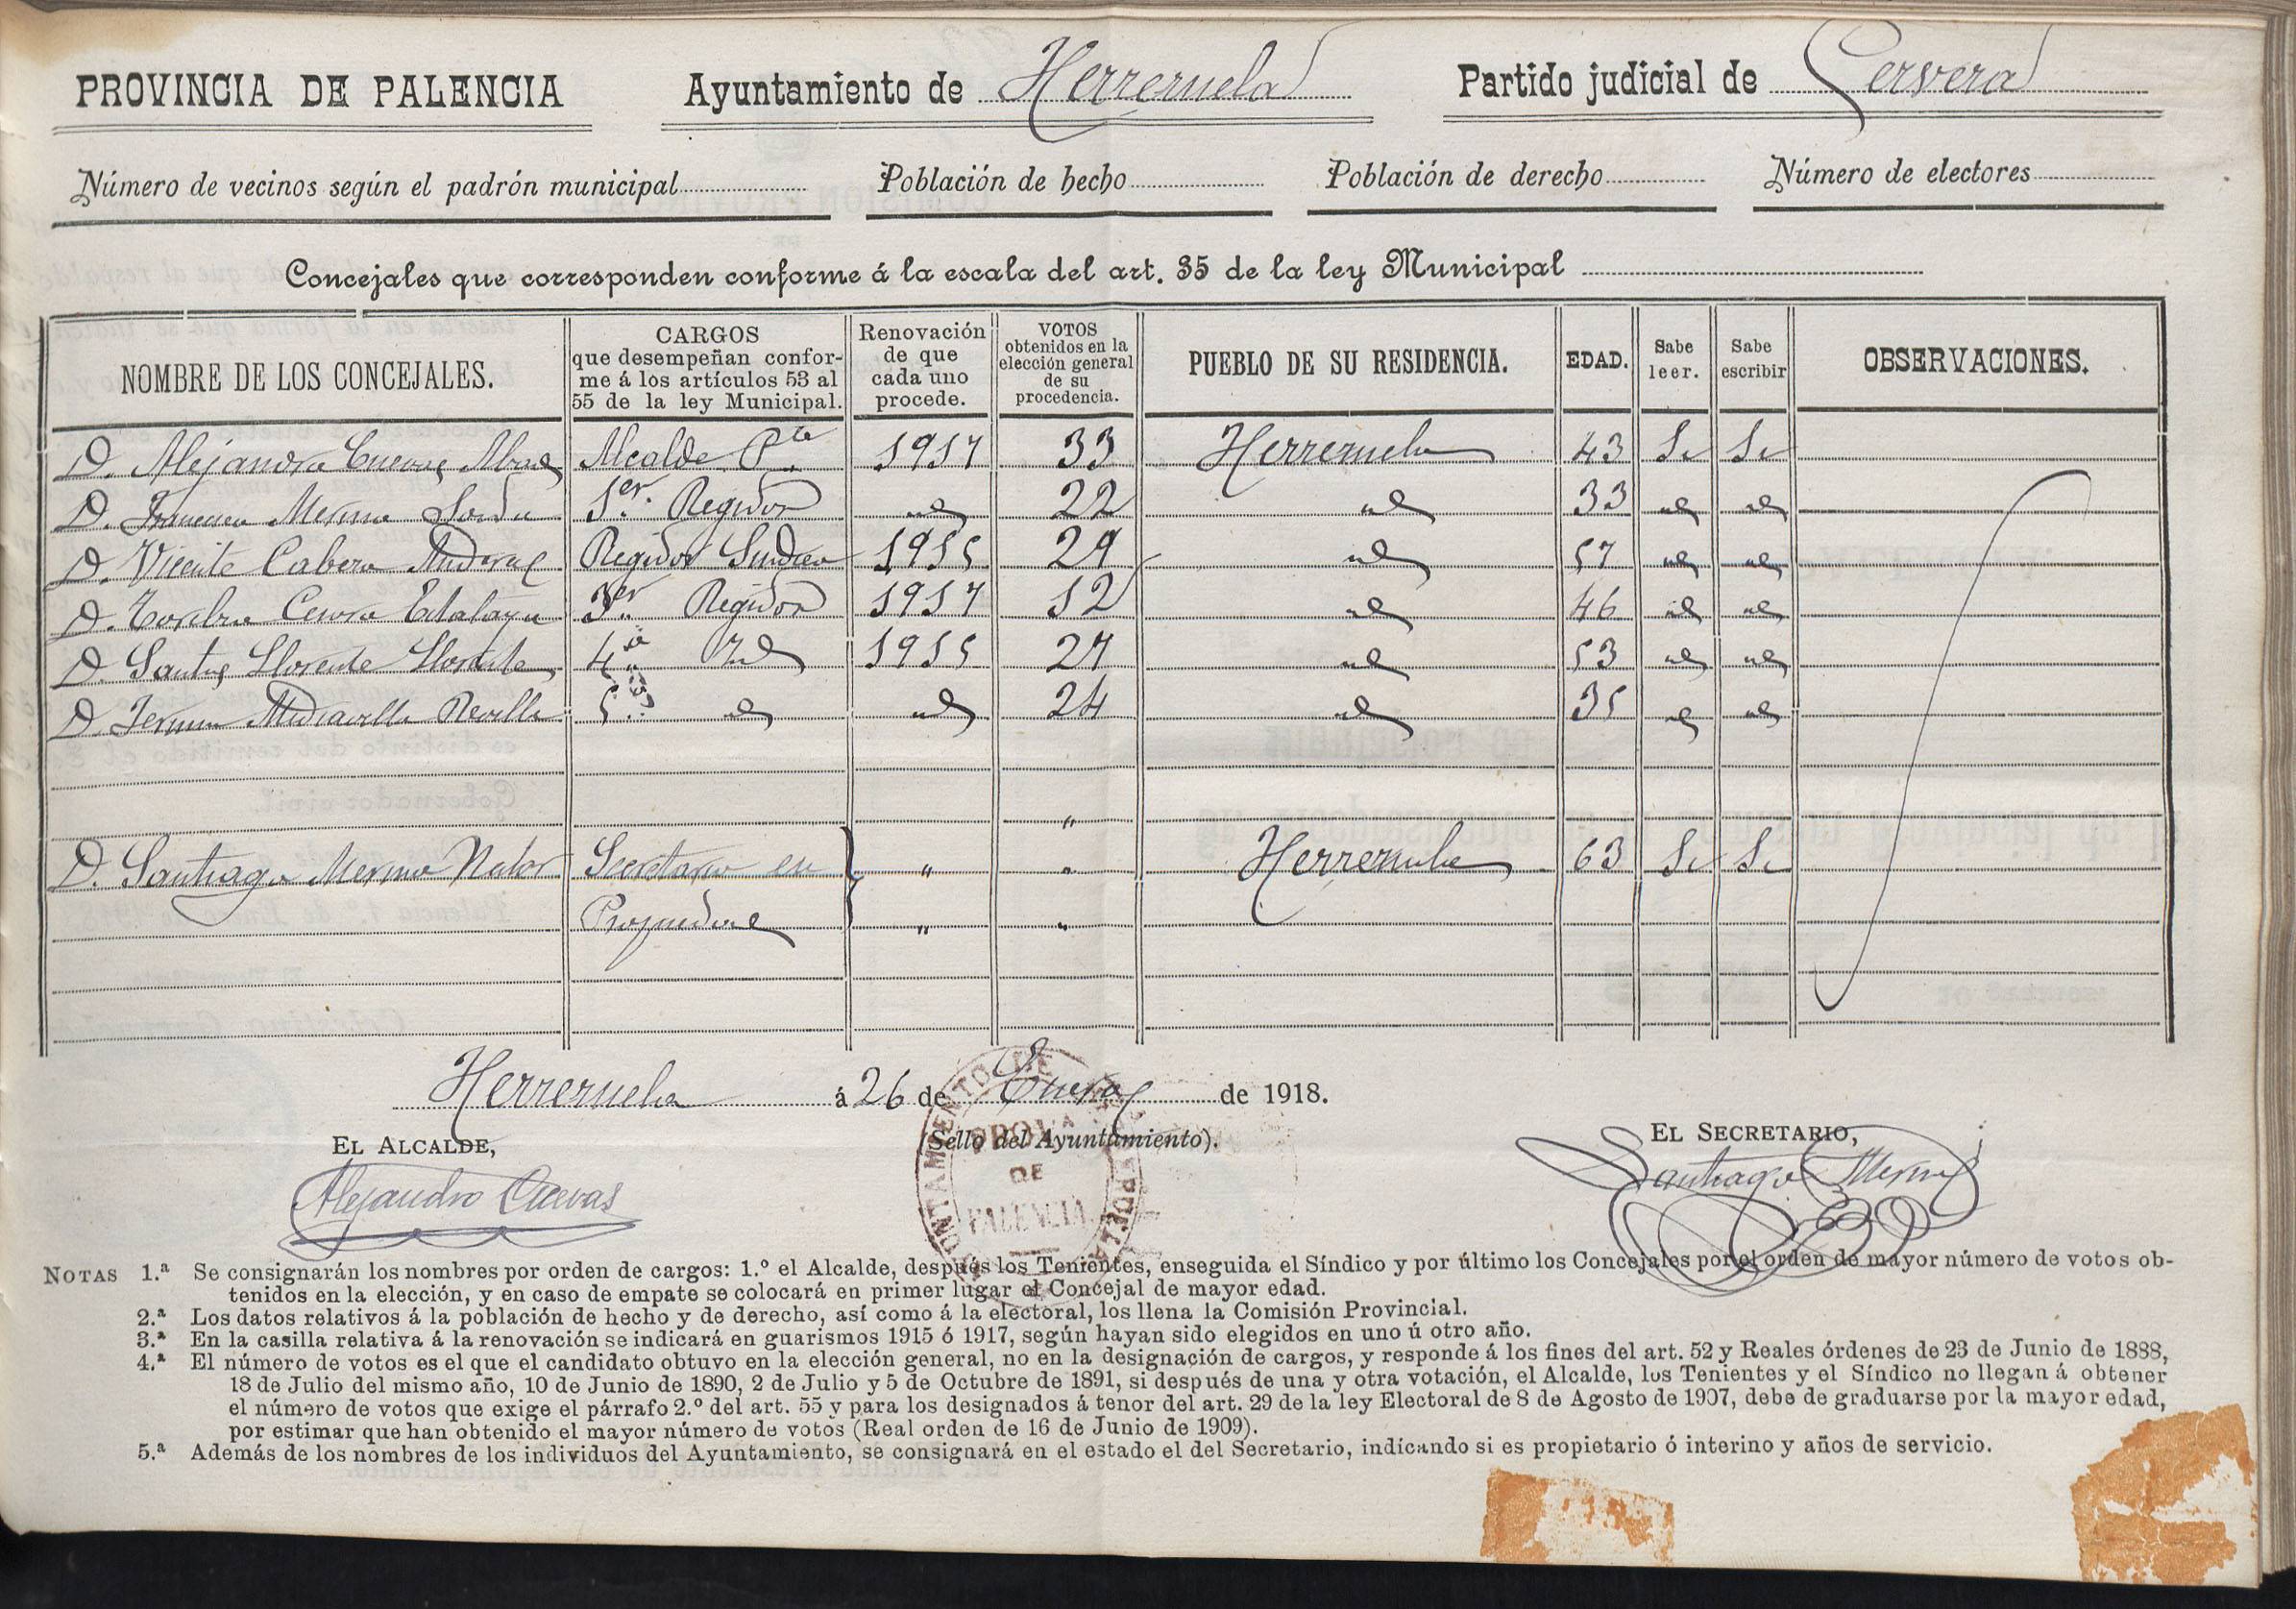 PROVINCIA DE PALENCIA Ayuntamiento de Herreruela Partido judicial de Cervera
Número de vecinos según el padrón municipal Población de hecho Población de derecho Número de electores
Concejales que corresponden conforme á la escala del art. 35 de la ley Municipal
NOMBRE DE LOS CONCEJALES. CARGOS que desempeñan conforme á los artículos 53 al 55 de la ley Municipal. Renovación de que cada uno procede. VOTOS obtenidos en la elección general de su procedencia. PUEBLO DE SU RESIDENCIA. EDAD. Sabe leer. Sabe escribir OBSERVACIONES.
D. Alejandro Cuevas Alcalde P.te 1917 33 Herreruela 43 Si Si
D. Francisco Merino 1er. Regidor id 22 id 33 id id
D. Vicente Cabeza Regidor Sindico 1915 29 id 57 id id
D. Toribio 3er. Regidor 1917 12 id 46 id id
D. Santos Llorente Llorente 4º id 1915 27 id 53 id id
D. Fermin Mediavilla Revilla 5º id id 24 id 35 id id
"
D. Santiago Merino Secretario en " " Herreruela 63 Si Si
Propiedad " "
Herreruela á 26 de Enero de 1918.
EL ALCALDE, (Sello del Ayuntamiento). EL SECRETARIO,
Alejandro Cuevas Santiago Merino
DE
PALENCIA
NOTAS 1.ª Se consignarán los nombres por orden de cargos: 1.º el Alcalde, después los Tenientes, enseguida el Síndico y por último los Concejales por el orden de mayor número de votos ob-
tenidos en la elección, y en caso de empate se colocará en primer lugar el Concejal de mayor edad.
2.ª Los datos relativos á la población de hecho y de derecho, así como á la electoral, los llena la Comisión Provincial.
3.ª En la casilla relativa á la renovación se indicará en guarismos 1915 ó 1917, según hayan sido elegidos en uno ú otro año.
4.ª El número de votos es el que el candidato obtuvo en la elección general, no en la designación de cargos, y responde á los fines del art. 52 y Reales órdenes de 23 de Junio de 1888,
18 de Julio del mismo año, 10 de Junio de 1890, 2 de Julio y 5 de Octubre de 1891, si después de una y otra votación, el Alcalde, los Tenientes y el Síndico no llegan á obtener
el número de votos que exige el párrafo 2.º del art. 55 y para los designados á tenor del art. 29 de la ley Electoral de 8 de Agosto de 1907, debe de graduarse por la mayor edad,
por estimar que han obtenido el mayor número de votos (Real orden de 16 de Junio de 1909).
5.ª Además de los nombres de los individuos del Ayuntamiento, se consignará en el estado el del Secretario, indicando si es propietario ó interino y años de servicio.